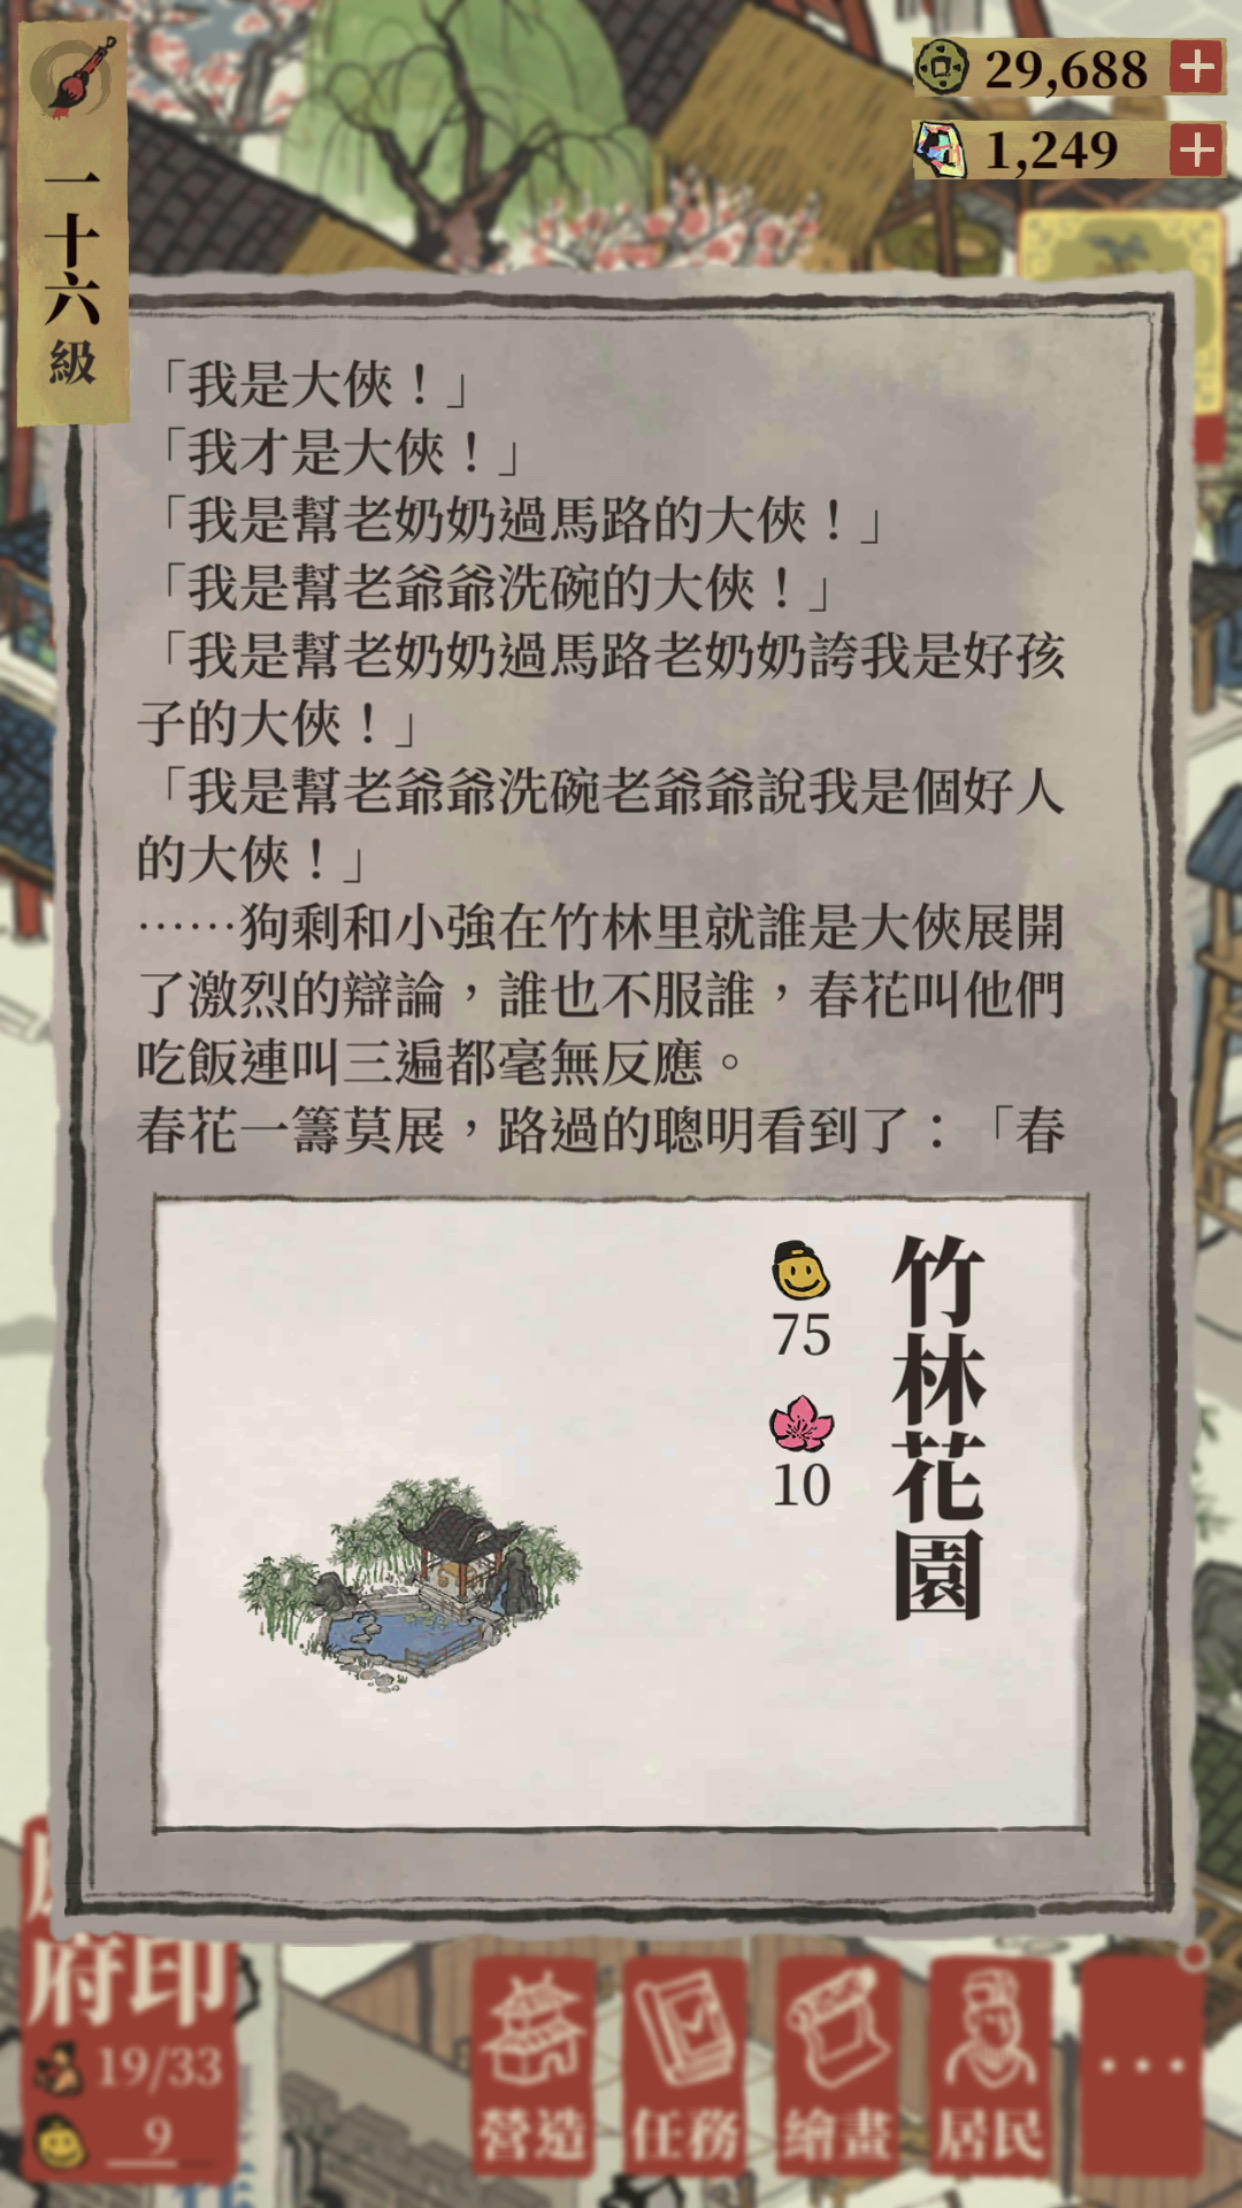 29,688
1,249
一十六級
「我是大俠！」
「我才是大俠！」
「我是幫老奶奶過馬路的大俠！」
「我是幫老爺爺洗碗的大俠！」
「我是幫老奶奶過馬路老奶奶誇我是好孩
子的大俠！」
「我是幫老爺爺洗碗老爺爺說我是個好人
的大俠！」
⋯⋯狗剩和小強在竹林里就誰是大俠展開
了激烈的辯論，誰也不服誰，春花叫他們
吃飯連叫三遍都毫無反應。
春花一籌莫展，路過的聰明看到了：「春
竹林花園
75
10
府印
19/33
9
營造
任務
繪畫
居民